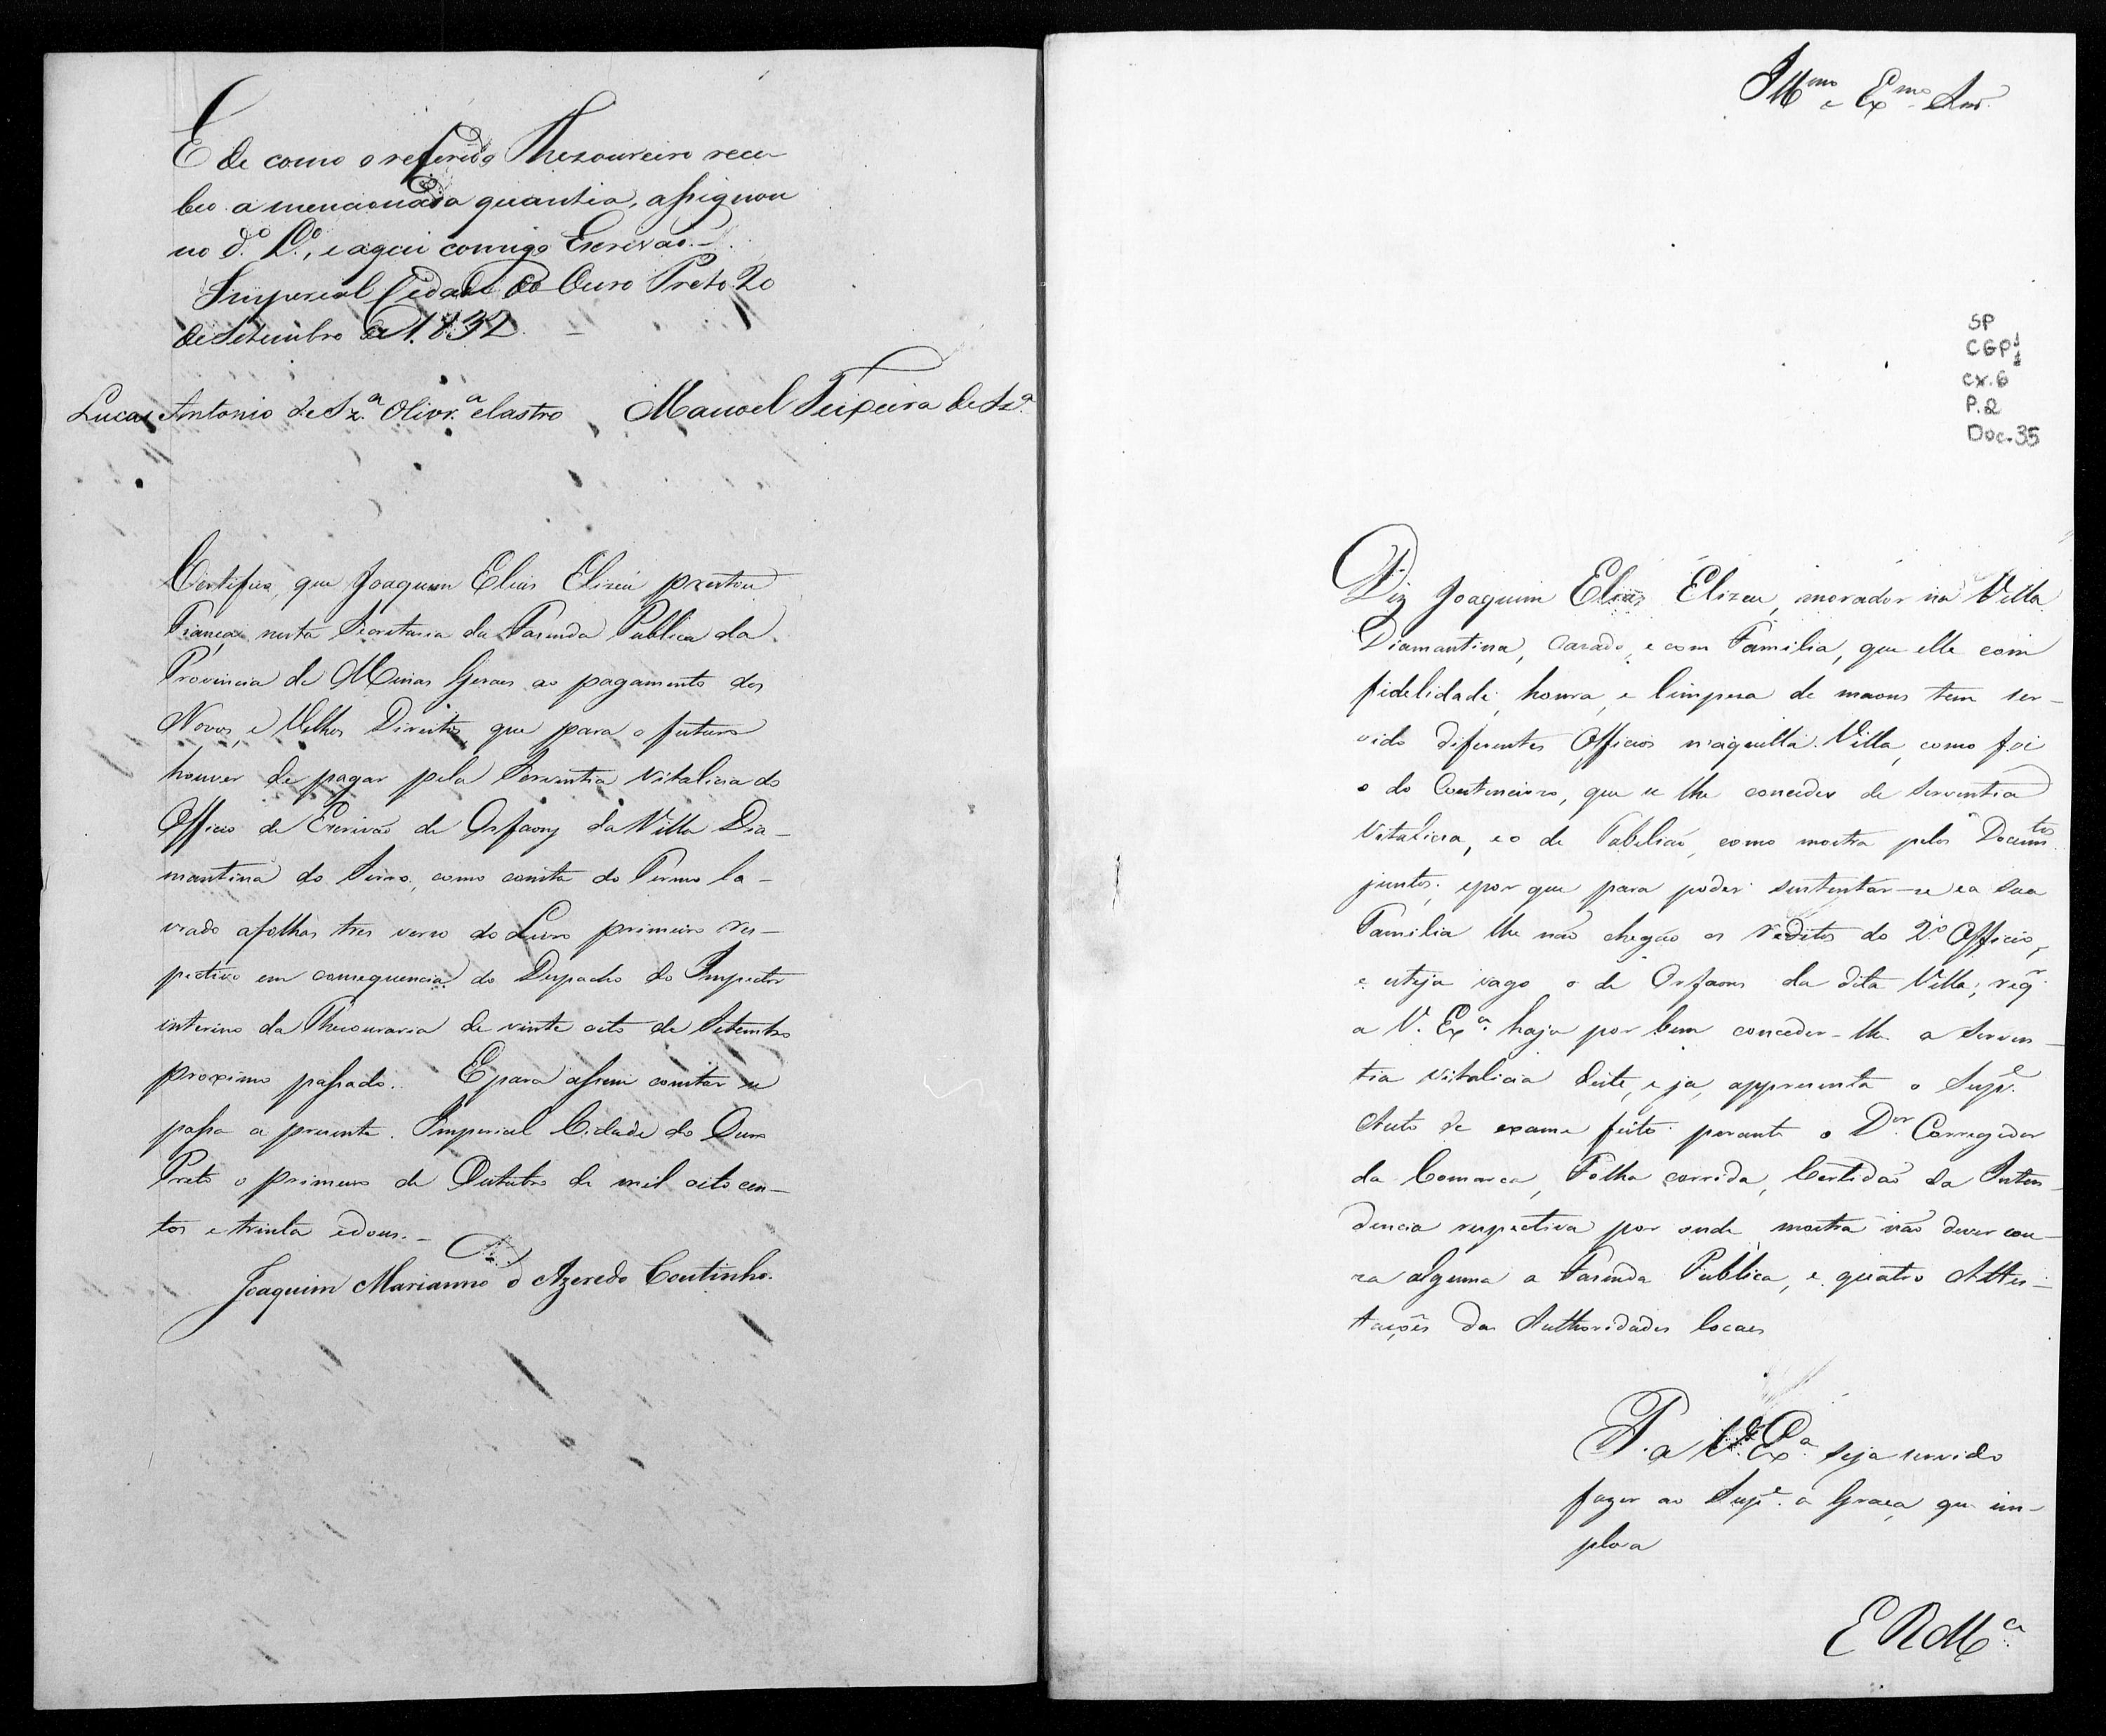 E de como o referido Thezoureiro rece-
beo a mencionada quantia, assignou
no dº. Lº., e aqui comigo Escrivão.-
Imperial Cidade do Ouro Preto 20
de Setembro de 1832.
Lucas Antonio de Sz.ª Olivr.ª e Castro Manoel Teixeira de Sz.ª
Certifico, que Joaquim Elias Elizeu prestou
Fiança nesta Secretaria da Fasenda Publica da
Provincia de Minas Geraes ao pagamento dos
Novos, e Velhos Direitos, que para o futuro
houver de pagar pela Serventia Vitalicia do
Officio de Escrivão de Orfaons da Villa Dia-
mantina do Serro, como consta do Termo la-
vrado a folhas tres verso do Livro primeiro res-
pectivo em consequencia do Despacho do Inspector
interino da Thesouraria de vinte oito de Setembro
proximo passado. E para assim constar se
passa a presente. Imperial Cidade do Ouro
Preto o primeiro de Outubro de mil oito cen-
tos e trinta e dous.-
Joaquim Marianno d'Azeredo Coutinho.
Illmo e Exmo Snr.
SP
CGP1
cx.6
P.2
Doc.35
Diz Joaquim Elias Elizeu, morador na Villa
Diamantina, Casado, e com Familia, que elle com
fidelidade, honra, e limpesa de maons tem ser-
vido diferentes Officios n'aquella Villa, como foi
o do Contencioso, que se lhe concedeo de Serventia
Vitalicia, e o de Tabelião, como mostra pelos Documtos
juntos; e por que para poder sustentar-se e a Sua
Familia lhe não chegão os reditos do 2º Officio,
e esteja vago o de Orfaons da dita Villa; req.
a V. Exª. haja por bem conceder-lhe a Serven-
tia vitalicia deste, e ja appresenta o Supe.
Auto de exame feito perante o Dor. Corregedor
da Comarca, Folha corrida, Certidão da Inten-
dencia respectiva por onde mostra não dever cou-
za alguma a Fasenda Publica, e quatro Attes-
tações das Authoridades locaes
P. a V. Exª. seja servido
fazer ao Supe. a Graça que im-
plora
E R Mce